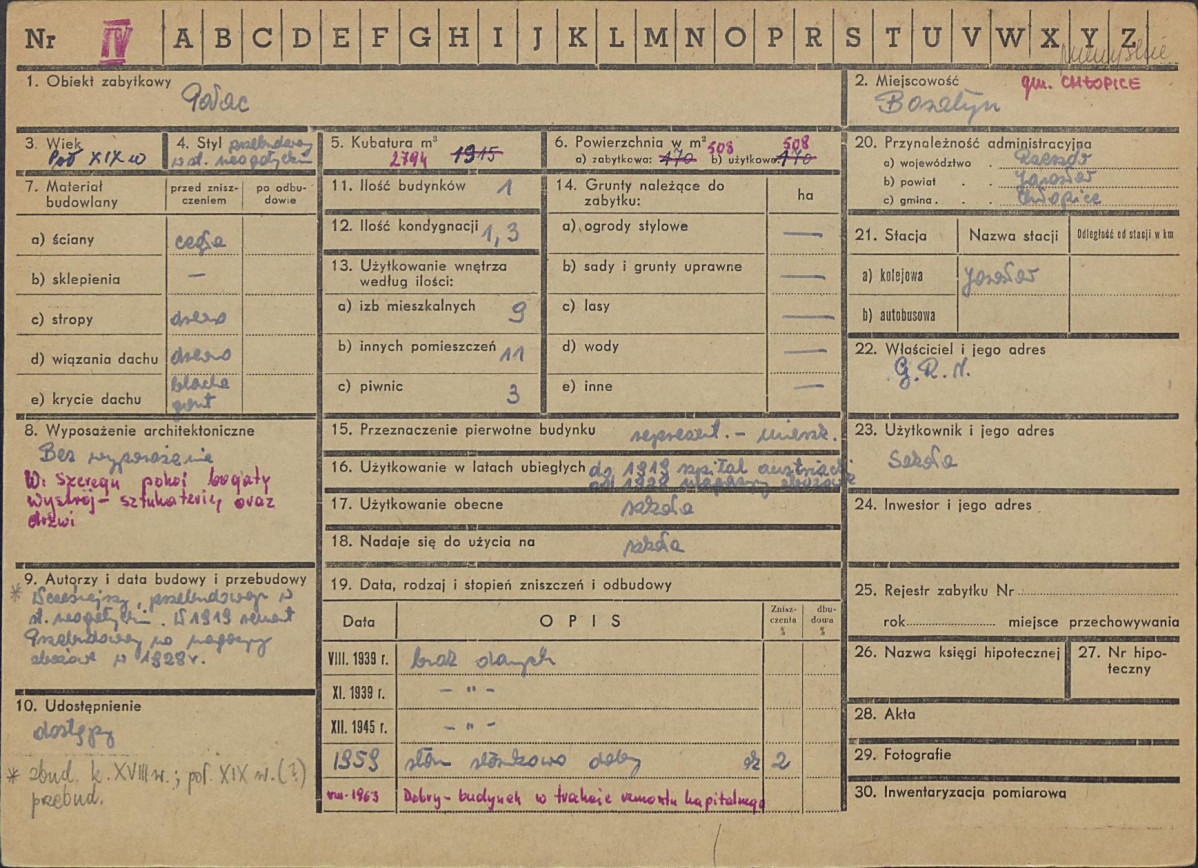 Nr IV A B C D E F G H I J K L M N O P R S T U V W X Y Z
1. Obiekt zabytkowy
Pałac
2. Miejscowość
gm. CHŁOPICE
Boratyn
3. Wiek
Poł XIX w
4. Styl przebudowany
w st. neogotyckim
5. Kubatura m³
2794 1915
6. Powierzchnia w m² 508 508
a) zabytkowa: 470 b) użytkowa: 470
7. Materiał budowlany
przed zniszczeniem
po odbudowie
a) ściany cegła
b) sklepienia —
c) stropy drewno
d) wiązania dachu drewno
e) krycie dachu blacha
gont
8. Wyposażenie architektoniczne
Bez wyposażenia
W: Szeregu pokoi bogaty
wystrój - sztukaterie, oraz
drzwi
* 9. Autorzy i data budowy i przebudowy
Wcześniejszy, przebudowany w
st. neogotyckim. W 1919 remont
Przebudowany na magazyny
zbożowe w 1928 r.
10. Udostępnienie
dostępny
* zbud. k. XVIII w.; poł. XIX w. (?)
przebud.
11. Ilość budynków 1
12. Ilość kondygnacji 1, 3
13. Użytkowanie wnętrza
według ilości:
a) izb mieszkalnych 9
b) innych pomieszczeń 11
c) piwnic 3
14. Grunty należące do
zabytku:
ha
a) ogrody stylowe —
b) sady i grunty uprawne —
c) lasy —
d) wody —
e) inne —
15. Przeznaczenie pierwotne budynku represent. - mieszk.
16. Użytkowanie w latach ubiegłych do 1919 szpital austriacki
od 1928 magazyny zbożowe
17. Użytkowanie obecne szkoła
18. Nadaje się do użycia na szkoła
19. Data, rodzaj i stopień zniszczeń i odbudowy
Data
OPIS
Zniszczenia %
dbudowa %
VIII. 1939 r. brak danych
XI. 1939 r. - " -
XII. 1945 r. - " -
1959 stan stosunkowo dobry 2
VIII-1963 Dobry - budynek w trakcie remontu kapitalnego
20. Przynależność administracyjna
a) województwo . Rzeszów
b) powiat . . Jarosław
c) gmina . . Chłopice
21. Stacja
Nazwa stacji
Odległość od stacji w km
a) kolejowa Jarosław
b) autobusowa
22. Właściciel i jego adres
G.R.N.
23. Użytkownik i jego adres
Szkoła
24. Inwestor i jego adres
25. Rejestr zabytku Nr
rok miejsce przechowywania
26. Nazwa księgi hipotecznej
27. Nr hipoteczny
28. Akta
29. Fotografie
30. Inwentaryzacja pomiarowa